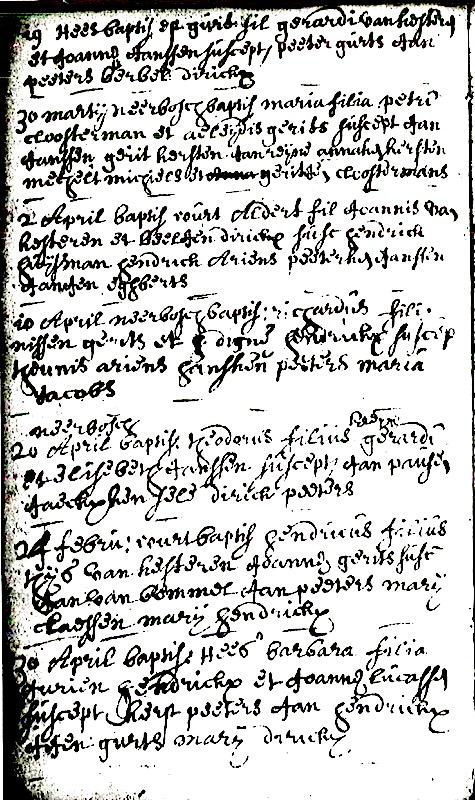 29 Hees baptis est gurit fil gerardi van hesteren
et Joanna Janssen suscept peeter gurts Jan
peeters berbel dirickx
30 martij neerbosch baptis maria filia petri
cloosterman et aeleydis gerits suscept Jan
Janssen gerit kersten Janreijne annaken kersten
mechelt michiels et geritjen cloostermans
2 April baptis vourt Aldert fil Joannis van
hesteren et Neelken dirickx susc hendrick
huijsman hendrick Ariens peeterken Jansen
Jantjen Egberts
10 April neerbosch baptis: richardus fili
nissen gerits et digna hendrickx suscep
theunis ariens hansken peeters maria
Jacobs
neerbosch
20 April baptis: theodorus filius gerardi
et elisebet Janssen suscept Jan pausen
Jaecksken dirick peeters
24 febru: vourt baptis hendricus filius
thijs van hesteren Joanna gerits susc
Jan van bemmel Jan peeters mary
claessen mary hendrickx
30 April baptis: Hees barbara filia
Jurien hendrickx et Joanna lucassen
suscept kerst peeters Jan hendrickx
gurts mary dirickx